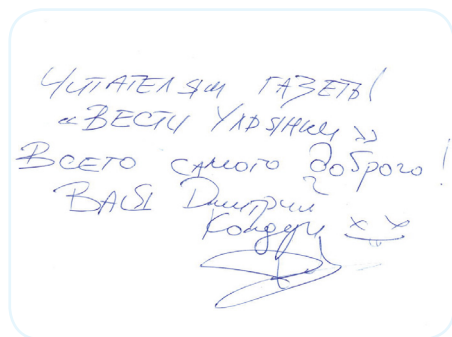 ЧИТАТЕЛЯМ ГАЗЕТЫ
«ВЕСТИ УЛЬЯНКИ»
ВСЕГО САМОГО доброго!
ВАШ Дмитрий